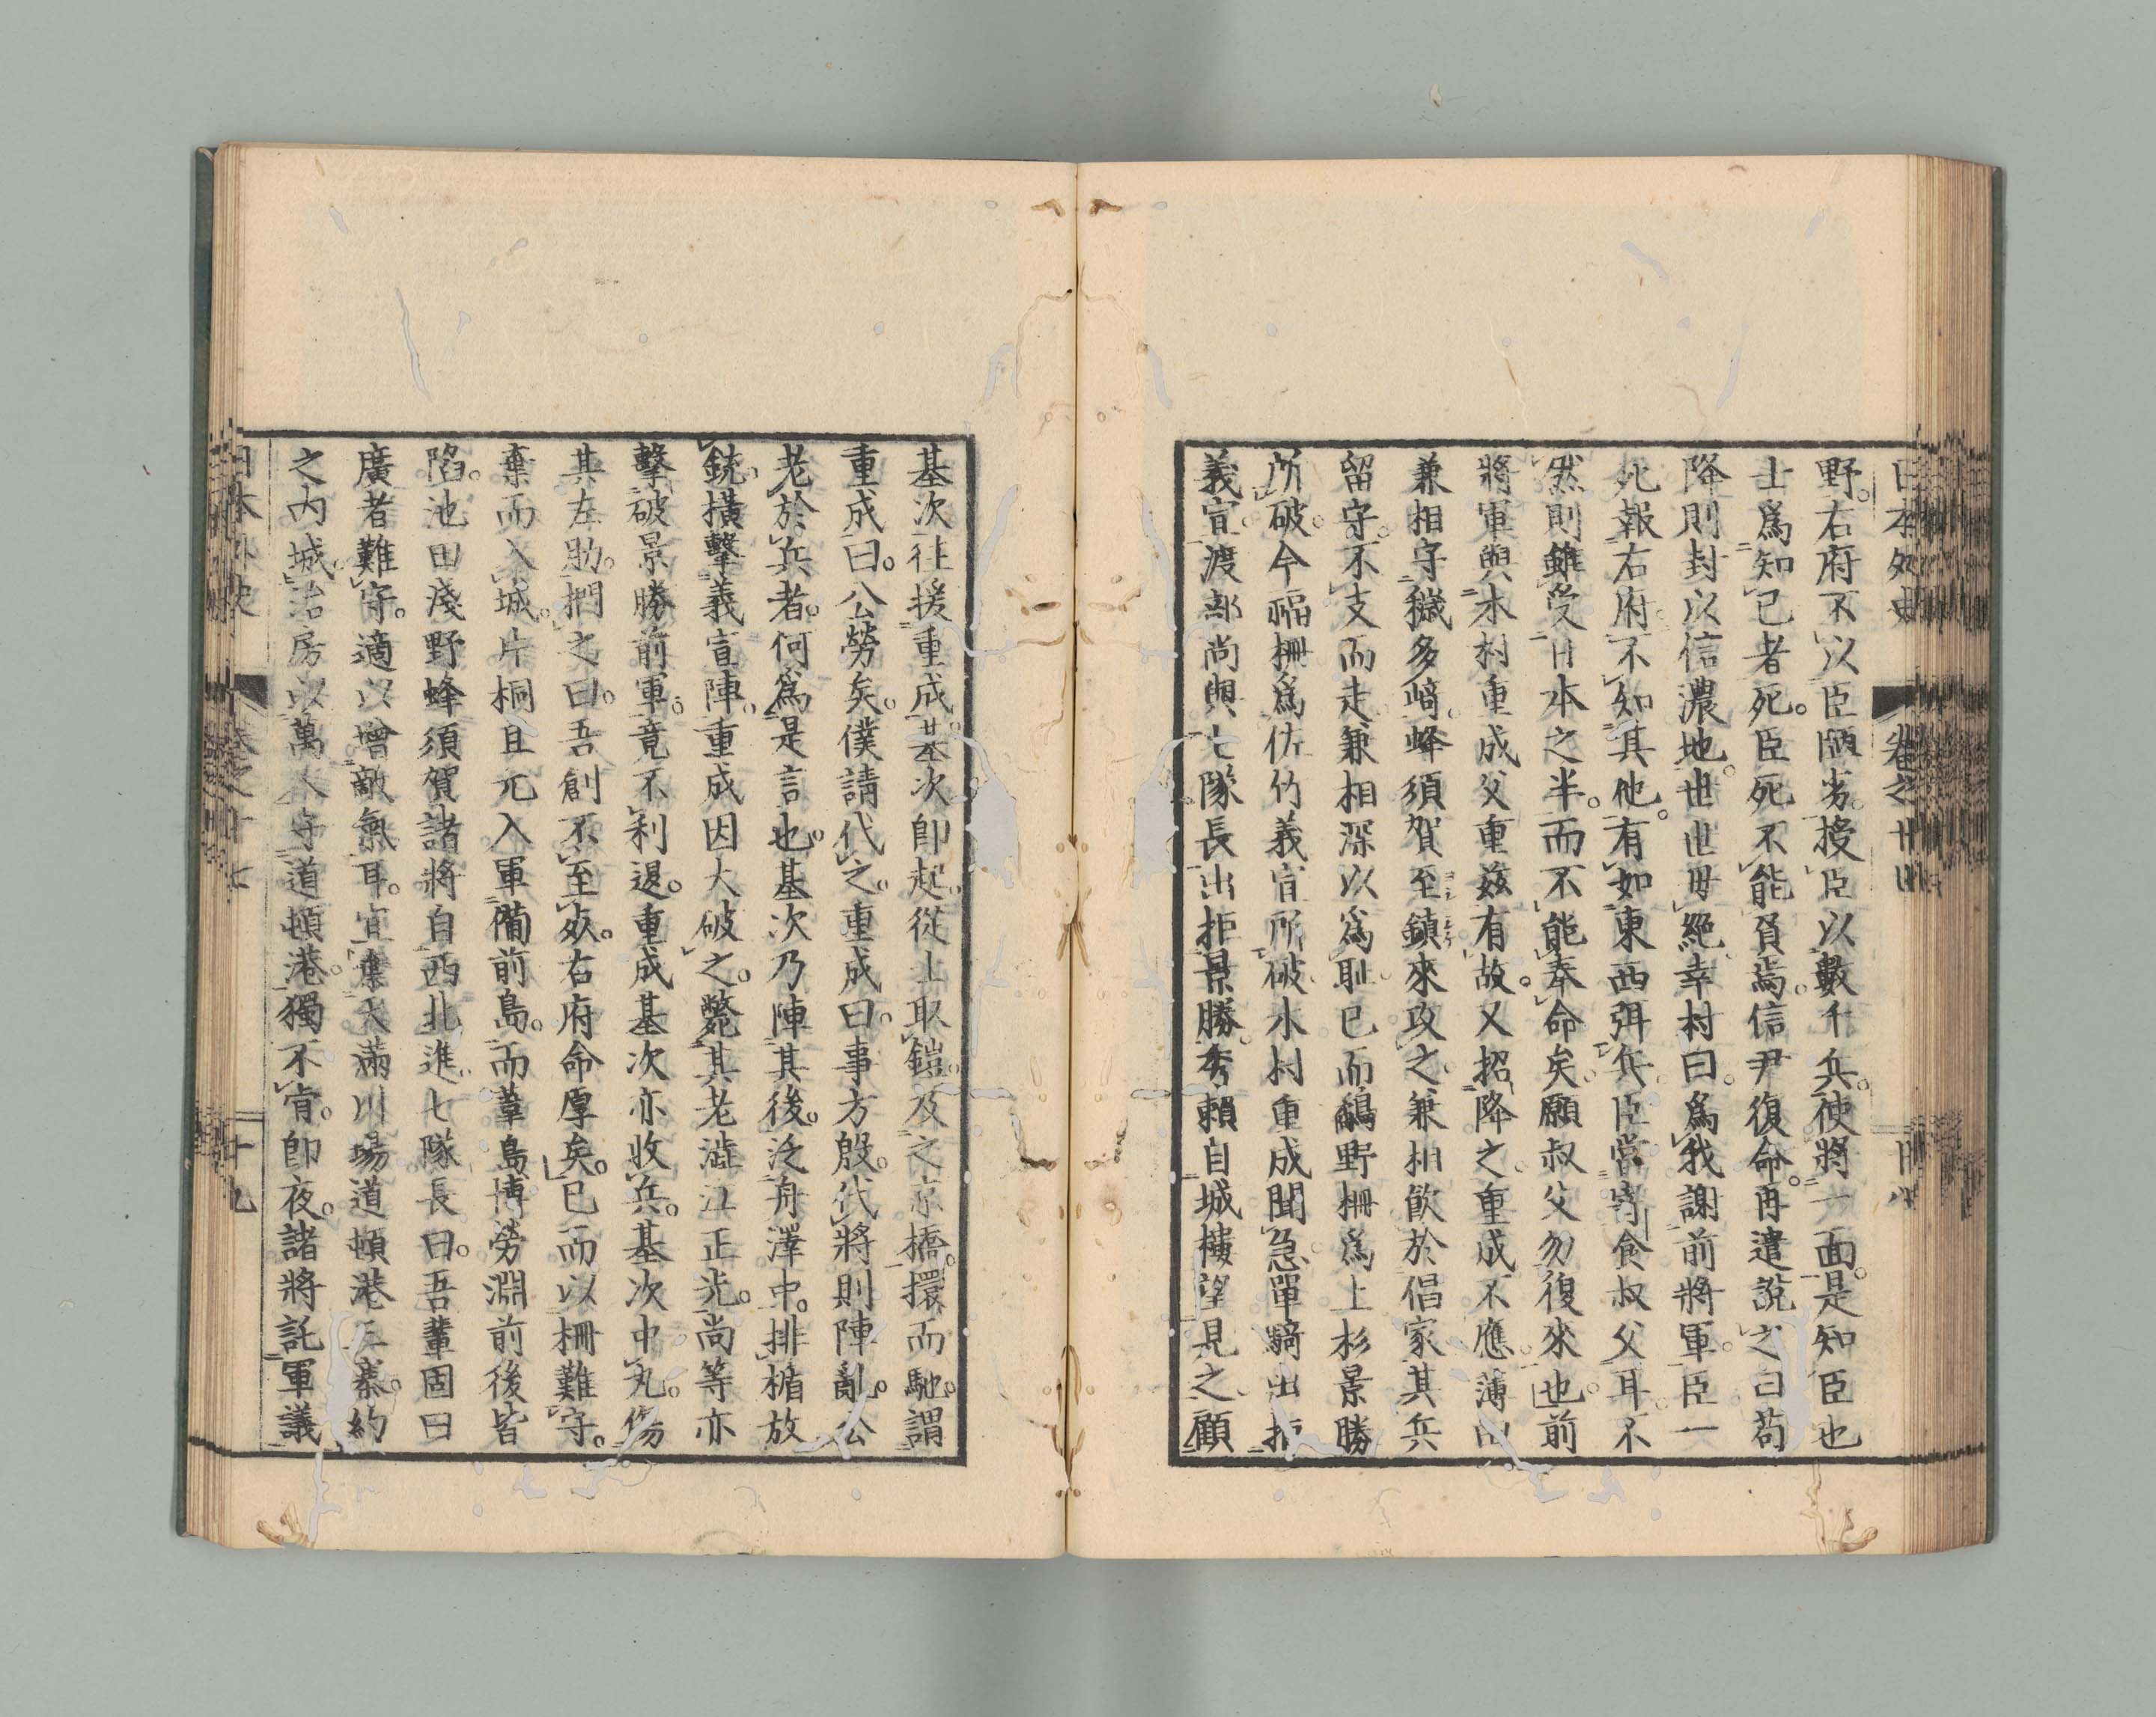 野。右府不以臣陋劣。授臣以數千兵。使將一面。是知臣也
士爲知己者死。臣死不能負焉。信尹復命。再遣說之曰苟
降則封以信濃地。世世毋絕。幸村曰。爲我謝前將軍。臣一
死報右府。不知其他。有如東西弭兵。臣當寄食叔父耳。不
然則雖受日本之半。而不能奉命矣。願叔父勿復來也。前
將軍與木村重成父重茲有故。又招降之。重成不應。薄田
兼相守穢多﨑。蜂須賀至鎮來攻之。兼相飮於倡家。其兵
留守。不支而走。兼相深以爲耻。已而鷸野柵爲上杉景勝
所破。今福柵爲佐竹義宣所破。木村重成聞急。單騎出拒
義宣。渡部尚與七隊長出拒景勝。秀賴自城樓望見之。顧
基次往援重成。基次卽起。從上取鎧。及之京橋。擐而馳。謂
重成曰。公勞矣。僕請代之。重成曰。事方殷。代將則陣亂。公
老於兵者。何爲是言也。基次乃陣其後。泛舟澤中。排楯放
銃。橫擊義宣陣。重成因大破之。斃其老澁江正光。尚等亦
擊破景勝前軍。竟不利退。重成基次亦收兵。基次中丸。傷
其左肋。捫之曰。吾創不至死。右府命厚矣。已而以柵難守。
棄而入城。片桐且元入軍備前島。而葦島博勞淵前後皆
陷。池田淺野蜂須賀諸將自西北進。七隊長曰。吾輩固曰
廣者難守。適以增敵氣耳。宜棄天滿川場道頓港三寨。約
之內城。治房以萬人守道頓港。獨不肯。卽夜。諸將託軍議
日本外史　卷之廿　十九